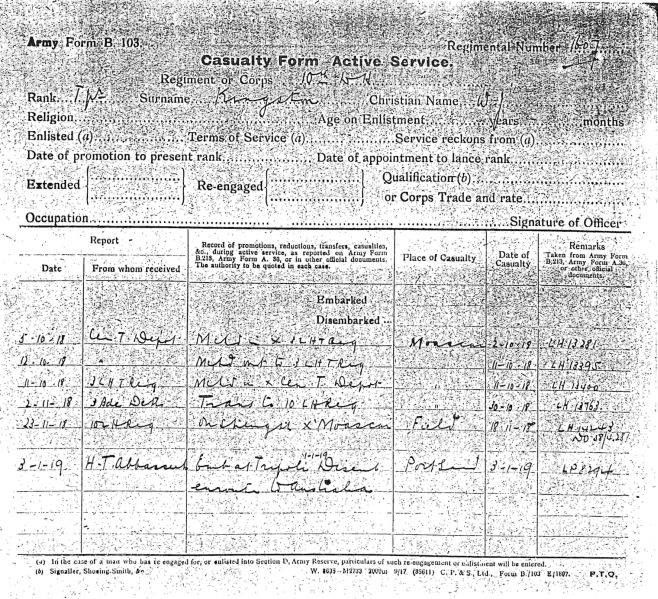 Army Form B. 103.
Regimental Number
Casualty Form Active Service.
Regiment or Corps 10th L H
Rank Tpr Surname Kingston Christian Name W J
Religion Age on Enlistment years months
Enlisted (a) Terms of Service (a) Service reckons from (a)
Date of promotion to present rank Date of appointment to lance rank
Extended Re-engaged Qualification (b)
or Corps Trade and rate
Occupation Signature of Officer
Report
Date From whom received
Record of promotions, reductions, transfers, casualties,
&c., during active service, as reported on Army Form
B.213, Army Form A. 36, or in other official documents.
The authority to be quoted in each case.
Place of Casualty
Date of
Casualty
Remarks
Taken from Army Form
B.213, Army Form A.36,
or other official
documents.
Embarked
Disembarked
5-10-18 Cen T. Depot in x 3 LHTReg Moascar 2-10-18 LH 13281
12-10-18 " out to 3 LHTReg 11-10-18 LH 13295
11-10-18 3 LHTReg in x Cen T. Depot 11-10-18 LH 13400
2-11-18 Trans to 10 LHReg 30-10-18 LH 13763
23-11-18 10 LHReg x Moascar Field 18-11-18
3-1-19 H.T. at Tripoli
Portland 3-1-19
enroute to Australia
(a) In the case of a man who has re-engaged for, or enlisted into Section D, Army Reserve, particulars of such re-engagement or enlistment will be entered.
(b) Signaller, Shoeing-Smith, &c W. 8035—M2733 2000m 9/17 (35611) C. P. & S., Ltd., Form B./103 E/1807. P.T.O.